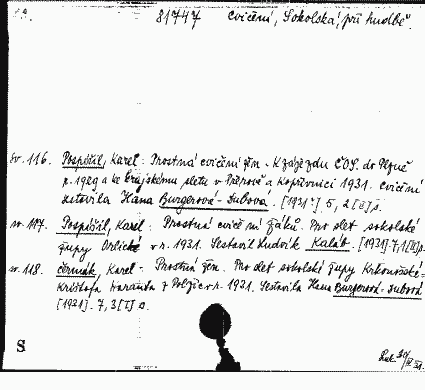 81747 Cvičení, Sokolská, při hudbě.
sv. 116. Pospíšil, Karel: Prostná cvičení žen. K zájezdu ČOS. do Plzně
r. 1929 a ke krajskému sletu v Přerově a Kopřivnici 1931. Cvičení
sestavila Hana Burgerová-Dubová. [1931?] 5, 2 [I] s.
sv. 117. Pospíšil, Karel: Prostná cvičení žáků. Pro slet sokolské
župy Orlické v r. 1931. Sestavil Ludvík Kaláb. [1931]. 7, 1 [I] s.
sv. 118. Čermák, Karel: Prostná žen. Pro slet sokolské župy Krkonošské-
Kristofa Haranta z Polžic v r. 1931. Sestavila Hana Burgerová-Dubová
[1931]. 7, 3 [I] s.
S